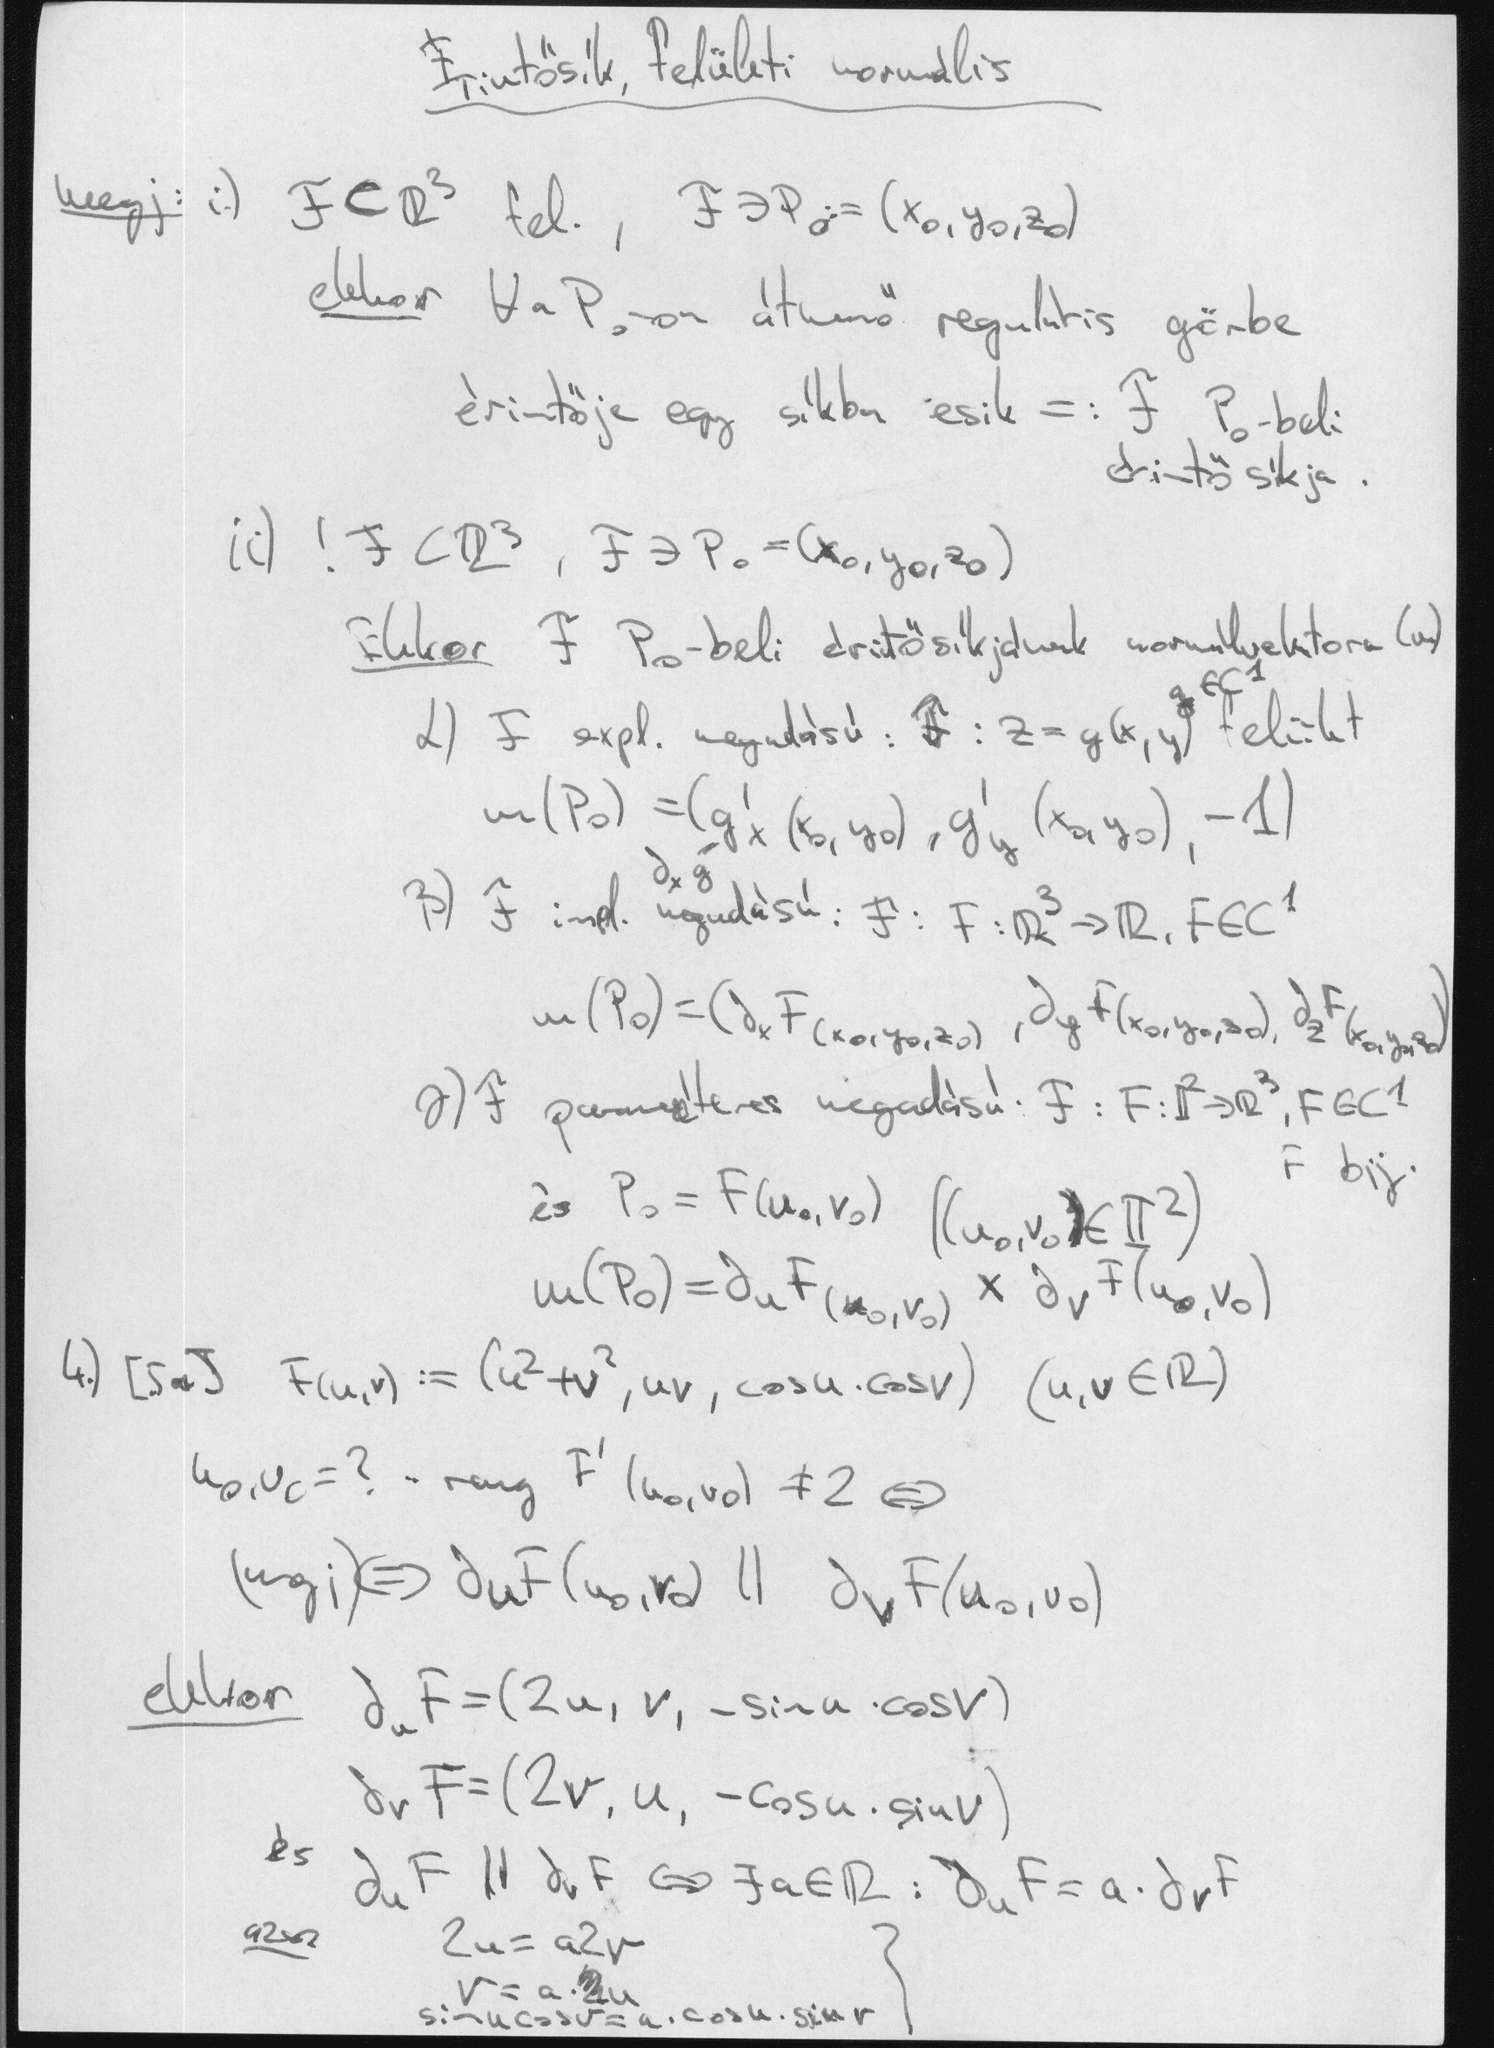 Érintősík, felületi normális
megj: i.) F ⊂ ℝ³ fel., F ∋ P₀ := (x₀, y₀, z₀)
ekkor ∀ a P₀-on átmenő reguláris görbe
érintője egy síkba esik =: F P₀-beli
érintősíkja.
ii) ! F ⊂ ℝ³, F ∋ P₀ = (x₀, y₀, z₀)
Ekkor F P₀-beli érintősíkjának normálvektora (m)
α) F expl. megadású: F : z = g(x, y) g ∈ C¹ felület
m(P₀) = (g'ₓ(x₀, y₀), g'_y(x₀, y₀), -1)
∂ₓg
β) F impl. megadású: F : F : ℝ³ → ℝ, F ∈ C¹
m(P₀) = (∂ₓF(x₀, y₀, z₀), ∂_yF(x₀, y₀, z₀), ∂_zF(x₀, y₀, z₀))
γ) F paraméteres megadású: F : F : I² → ℝ³, F ∈ C¹
F bij.
és P₀ = F(u₀, v₀) ((u₀, v₀) ∈ I²)
m(P₀) = ∂ᵤF(u₀, v₀) × ∂ᵥF(u₀, v₀)
4.) [5a] F(u, v) := (u² + v², uv, cosu · cosv) (u, v ∈ ℝ)
u₀, v₀ = ? · rang F'(u₀, v₀) ≠ 2 ⇔
(megj) ⇔ ∂ᵤF(u₀, v₀) || ∂ᵥF(u₀, v₀)
ekkor ∂ᵤF = (2u, v, -sinu · cosv)
∂ᵥF = (2v, u, -cosu · sinv)
és ∂ᵤF || ∂ᵥF ⇔ ∃ a ∈ ℝ : ∂ᵤF = a · ∂ᵥF
azaz 2u = a2v
v = a · u
sinu cosv = a · cosu · sinv }